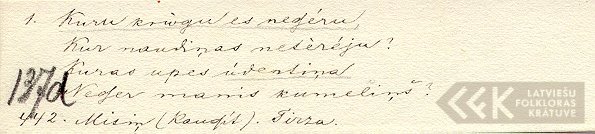 1. Kuru krōgu es nedzēru,
Kur naudiņas netērēju?
Kuras upes ūdentiņa
Nedzer manis kumeliņš?
137d
442. Misiņ (Kaudzīt). Tirza.
LATVIEŠU
FOLKLORAS
KRĀTUVE